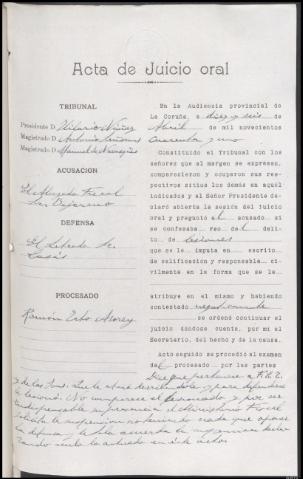 Acta de Juicio oral
TRIBUNAL
Presidente D. Hilario Núñez
Magistrado D. Antonio
Magistrado D. Manuel de
ACUSACION
El Abogado Fiscal
Sr. Bejarano
DEFENSA
El Letrado Sr.
PROCESADO
Ramón
En la Audiencia provincial de
La Coruña, a diez y seis de
Abril de mil novecientos
cuarenta y uno
Constituido el Tribunal con los
señores que al margen se expresan,
comparecieron y ocuparon sus res-
pectivos sitios los demás en aquel
indicados y el Señor Presidente de-
claró abierta la sesión del juicio
oral y preguntó al acusado si
se confesaba reo del deli-
to de lesiones
que se le imputa en escrito
de calificación y responsable ci-
vilmente en la forma que se le
atribuye en el mismo y habiendo
contestado negativamente
se ordenó continuar el
juicio dándose cuenta, por mi el
Secretario, del hecho y de la causa.
Acto seguido se procedió al examen
del procesado por las partes
Dice que pertenece a F.E.T.
y de las Jons. que le
lesionó. No comparece el y por ser
indispensable su presencia el Ministerio Fiscal
la suspensión no teniendo nada que oponer
la defensa, y la Sala acuerda la suspensión